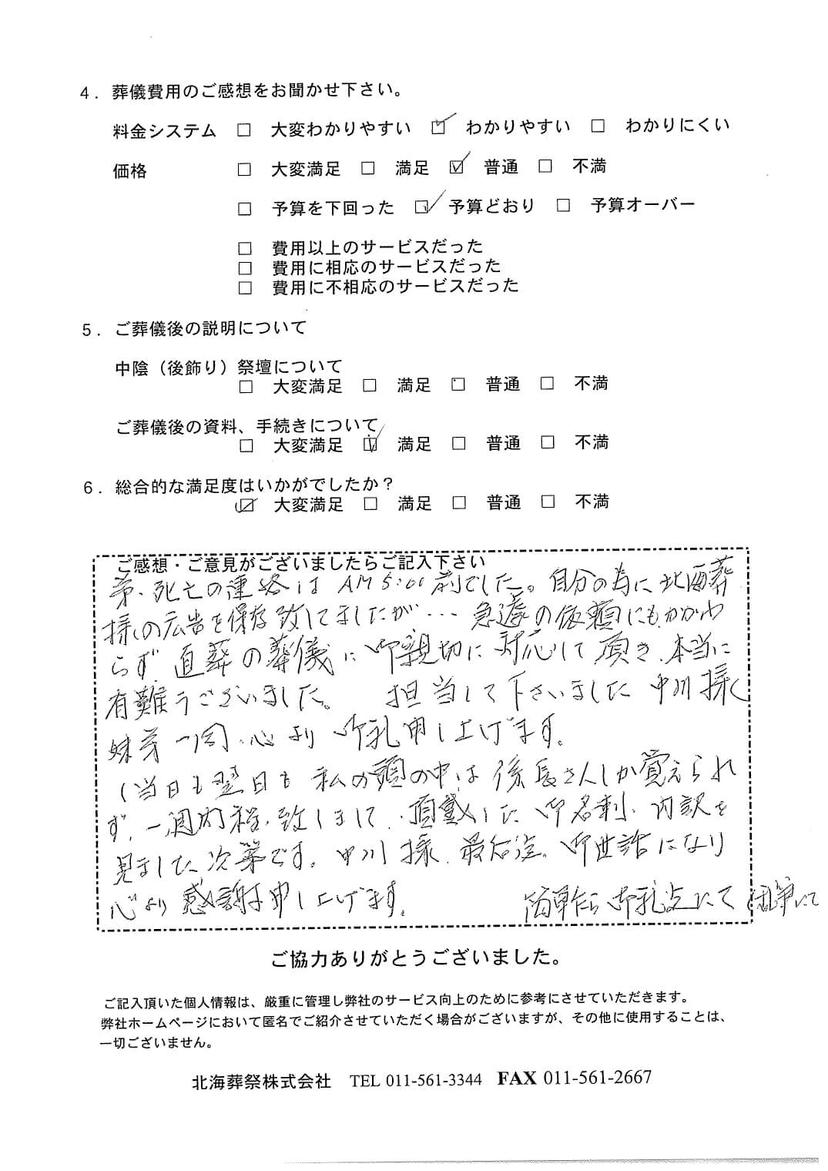 4．葬儀費用のご感想をお聞かせ下さい。
料金システム □ 大変わかりやすい ☑ わかりやすい □ わかりにくい
価格 □ 大変満足 □ 満足 ☑ 普通 □ 不満
□ 予算を下回った ☑ 予算どおり □ 予算オーバー
□ 費用以上のサービスだった
□ 費用に相応のサービスだった
□ 費用に不相応のサービスだった
5．ご葬儀後の説明について
中陰（後飾り）祭壇について
□ 大変満足 □ 満足 □ 普通 □ 不満
ご葬儀後の資料、手続きについて
□ 大変満足 ☑ 満足 □ 普通 □ 不満
6．総合的な満足度はいかがでしたか？
☑ 大変満足 □ 満足 □ 普通 □ 不満
ご感想・ご意見がございましたらご記入下さい
弟、死亡の連絡は AM5:00前でした。自分の為に北海葬
様の広告を保存致してましたが… 急遽の依頼にもかかわ
らず 直葬の葬儀に御親切に対応して頂き、本当に
有難うございました。 担当して下さいました 中川様
姉弟一同、心より御礼申し上げます。
（当日も翌日も私の頭の中は係長さんしか覚えられ
ず、一週間程致しまして、頂戴した御名刺、内訳を
見ました次第です。中川様、最后迄、御世話になり
心より感謝申し上げます。 簡単なら御礼にて 乱筆にて
ご協力ありがとうございました。
ご記入頂いた個人情報は、厳重に管理し弊社のサービス向上のために参考にさせていただきます。
弊社ホームページにおいて匿名でご紹介させていただく場合がございますが、その他に使用することは、
一切ございません。
北海葬祭株式会社 TEL 011-561-3344 FAX 011-561-2667